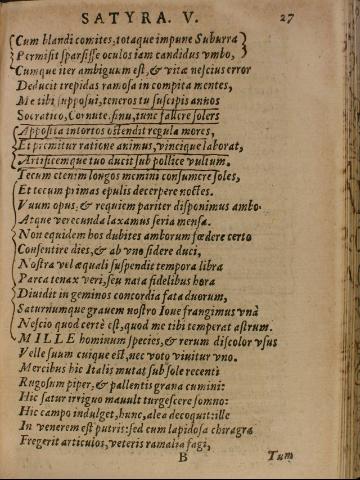 SATYRA. V. 27
Cum blandi comites, totaque impune Suburra
Permisit sparsisse oculos iam candidus vmbo,
Cumque iter ambiguum est, & vitæ nescius error
Deducit trepidas ramosa in compita mentes,
Me tibi supposui, teneros tu suscipis annos
Socratico, Cornute, sinu, tunc fallere solers
Apposita intortos ostendit regula mores,
Et premitur ratione animus, vincique laborat,
Artificemque tuo ducit sub pollice vultum.
Tecum etenim longos memini consumere soles,
Et tecum primas epulis decerpere noctes.
Vuum opus, & requiem pariter disponimus ambo.
Atque verecunda laxamus seria mensa.
Non equidem hos dubites amborum fœdere certo
Consentire dies, & ab vno sidere duci,
Nostra vel æquali suspendit tempora libra
Parca tenax veri, seu nata fidelibus hora
Diuidit in geminos concordia fata duorum,
Saturnumque grauem nostro Ioue frangimus vnà
Nescio quod certè est, quod me tibi temperat astrum.
MILLE hominum species, & rerum discolor vsus
Velle suum cuique est, nec voto viuitur vno.
Mercibus hic Italis mutat sub sole recenti
Rugosum piper, & pallentis grana cumini:
Hic satur irriguo mauult turgescere somno:
Hic campo indulget, hunc, alea decoquit: ille
In venerem est putris: sed cum lapidosa chiragra
Fregerit articulos, veteris ramalia fagi,
B Tum